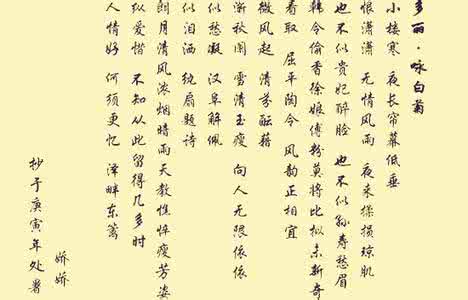 多丽·咏白菊
小楼寒 夜长帘幕低垂
恨潇潇 无情风雨 夜来揉损琼肌
也不似贵妃醉脸 也不似孙寿愁眉
韩令偷香徐娘傅粉莫将比拟未新奇
看取 屈平陶令 风韵正相宜
微风起 清芬酝藉
渐秋阑 雪清玉瘦 向人无限依依
似愁凝 汉阜解佩
似泪洒 纨扇题诗
朗月清风浓烟暗雨天教憔悴瘦芳姿
纵爱惜 不知从此留得几多时
人情好 何须更忆 泽畔东篱
娇娇
抄于庚寅年处暑